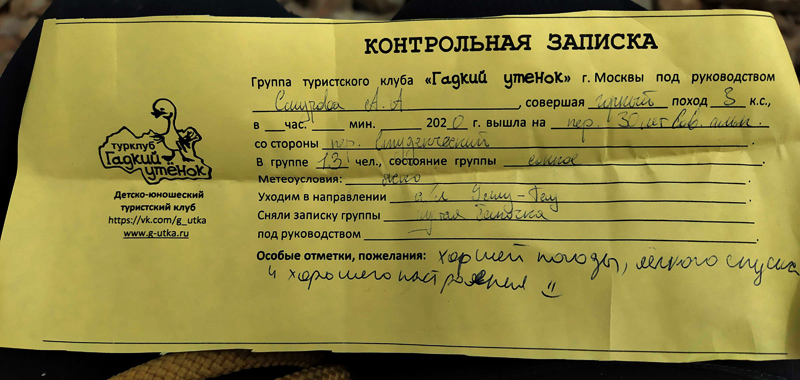 КОНТРОЛЬНАЯ ЗАПИСКА
Группа туристского клуба «Гадкий утёнок» г. Москвы под руководством
А. А, совершая горный поход 3 к.с.,
в час. мин. 2020 г. вышла на пер. 30 лет Сов.
со стороны Студенческий
В группе 13 чел., состояние группы
Метеоусловия: ясно
Уходим в направлении
Сняли записку группы
под руководством
Особые отметки, пожелания: хорошей погоды, лёгкого спуска
и хорошего настроения
турклуб
Гадкий
утёнок
Детско-юношеский
туристский клуб
https://vk.com/g_utka
www.g-utka.ru